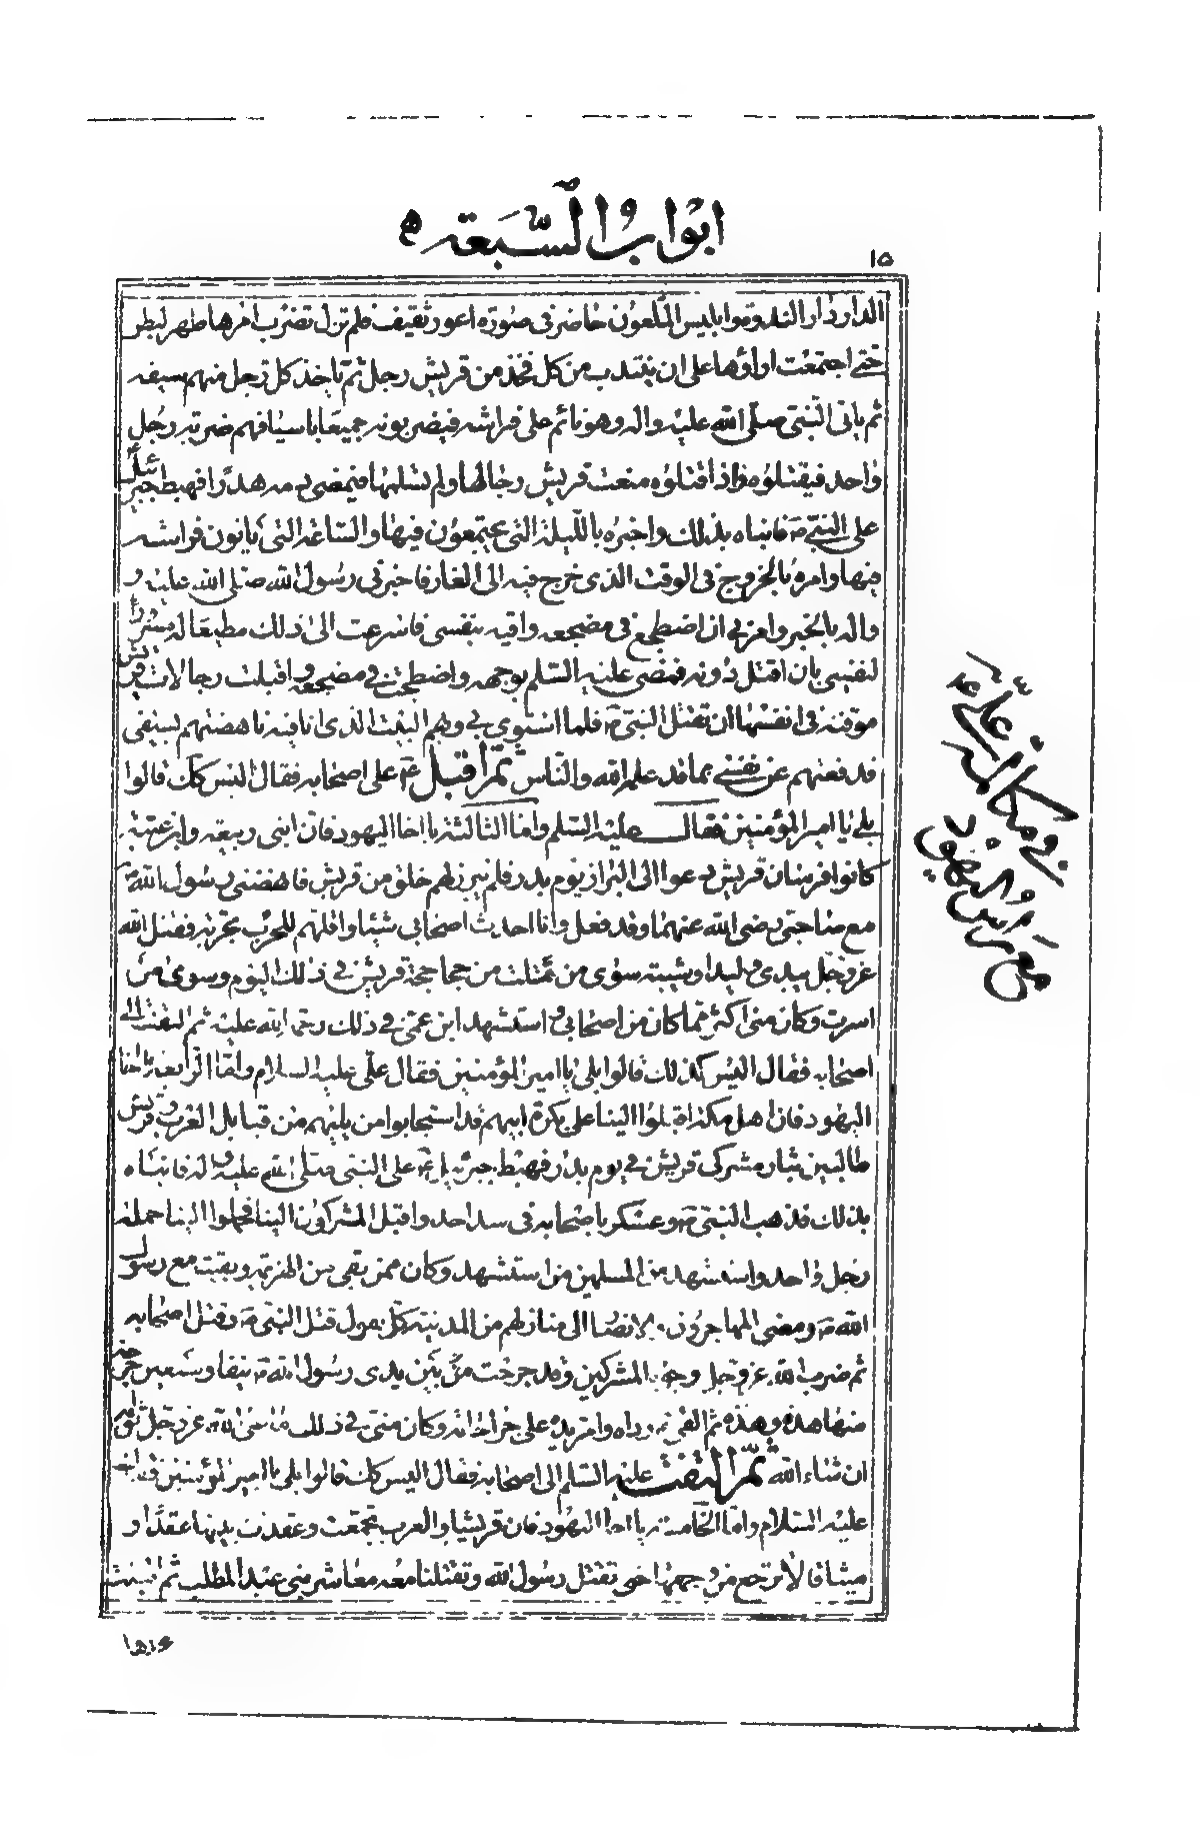 ابواب السبعة
١٥
الدار دار الندوة وابليس الملعون حاضر في صورة اعور ثقيف فلم تزل تضرب امرها ظهر لبطن
حتى اجتمعت اراؤها على ان ينتدب من كل فخذ من قريش رجل ثم ياخذ كل رجل منهم سيفه
ثم ياتى النبى صلى الله عليه واله وهو نائم على فراشه فيضربونه جميعا باسيافهم ضربة رجل
واحد فيقتلوه فاذا قتلوه منعت قريش رجالها ولم تسلمها فيمضى دمه هدرا فهبط جبرئيل
على النبى ص فانباه بذلك واخبره بالليلة التى يجتمعون فيها والساعة التى ياتون فراشه
فيها وامره بالخروج فى الوقت الذى خرج فيه الى الغار فاخبرنى رسول الله صلى الله عليه و
واله بالخبر وامرنى ان اضطجع فى مضجعه واقيه بنفسى فاسرعت الى ذلك مطيعا له مسرورا
لنفسى بان اقتل دونه فمضى عليه السلم لوجهه واضطجعت فى مضجعه واقبلت رجالات قريش
موقنة فى انفسها ان تقتل النبى ص فلما استوى بى وبهم البيت الذى انا فيه ناهضتهم بسيفى
فدفعتهم عن نفسى بما قد علمه الله والناس ثم اقبل ع على اصحابه فقال اليس كك قالوا
بلى يا امير المؤمنين فقال عليه السلم واما الثالثة يا اخا اليهود فان ابنى ربيعة وابن عتبة
كانوا فرسان قريش دعوا الى البراز يوم بدر فلم يبرز لهم خلق من قريش فانهضنى رسول الله ص
مع صاحبى رضى الله عنهما وقد فعل وانا احدث اصحابى سنا واقلهم للحرب تجربة فقتل الله
عز وجل بيدى وليدا وشيبة سوى من قتلت من جحاجحة قريش فى ذلك اليوم وسوى من
اسرت وكان منى اكثر مما كان من اصحابى واستشهد ابن عمى فى ذلك رحمة الله عليه ثم التفت الى
اصحابه فقال اليس كذلك قالوا بلى يا امير المؤمنين فقال على عليه السلام واما الرابعة يا اخا
اليهود فان اهل مكة اقبلوا الينا على بكرة ابيهم قد استجابوا من يليهم من قبايل العرب وقريش
طالبين بثار مشركى قريش فى يوم بدر فهبط جبرئيل ع على النبى صلى الله عليه واله فانباه
بذلك فذهب النبى ص وعسكر باصحابه فى سد احد واقبل المشركون الينا فحملوا الينا حملة
رجل واحد واستشهد من المسلمين من استشهد وكان ممن بقى من الهزيمة وبقيت مع رسول
الله ص ومضى المهاجرون والانصار الى منازلهم من المدينة كل يقول قتل النبى ص وقتل اصحابه
ثم ضرب الله عز وجل وجوه المشركين وقد جرحت من بين يدى رسول الله ص نيفا وسبعين جرحة
منها هذه وهذه ثم القى رداه وامر يده على جراحاته وكان منى فى ذلك ما على الله عز وجل ثوابه
ان شاء الله ثم التفت عليه السلم الى اصحابه فقال اليس كك قالوا بلى يا امير المؤمنين فقال
عليه السلام واما الخامسة يا اخا اليهود فان قريشا والعرب تجمعت وعقدت بينها عقدا و
ميثاقا لا ترجع من وجهها حتى تقتل رسول الله وتقتلنا معه معاشر بنى عبد المطلب ثم اقبلت
فى مكالمة على ع
مع راس اليهود